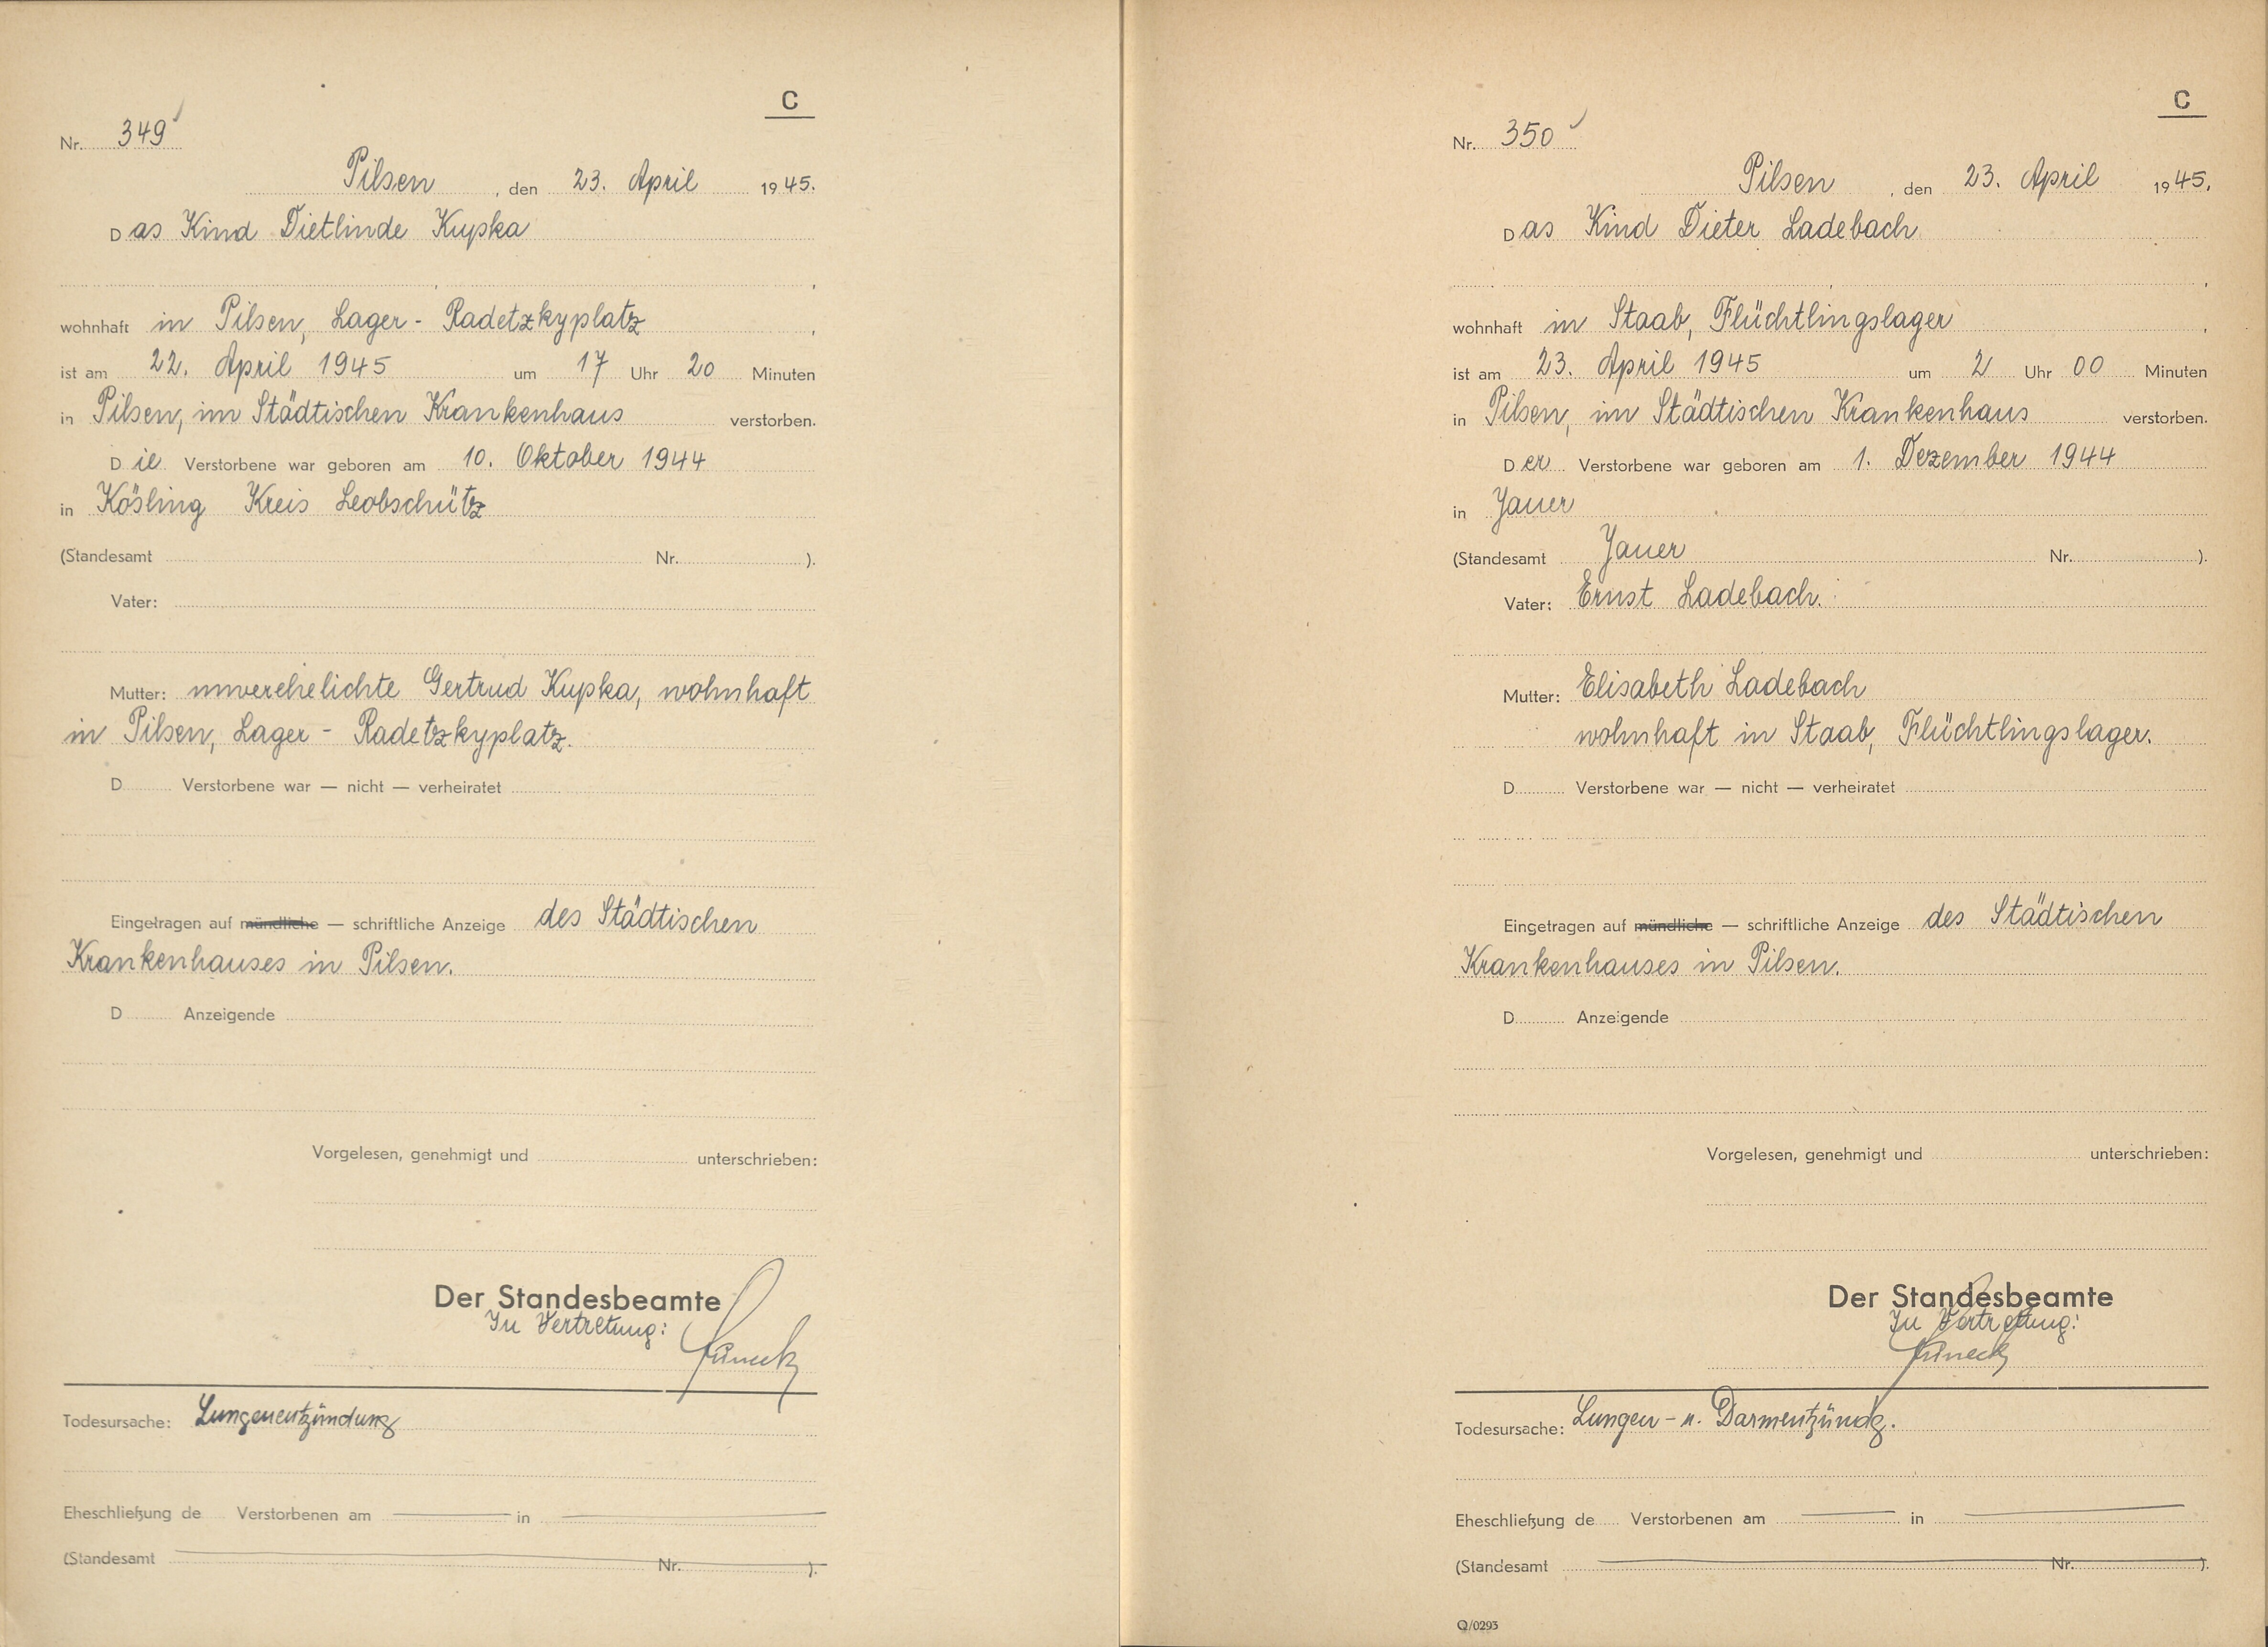 C
Nr. 349
Pilsen, den 23. April 1945.
Das Kind Dietlinde Kupka
,
wohnhaft in Pilsen, Lager - Radetzkyplatz,
ist am 22. April 1945 um 17 Uhr 20 Minuten
in Pilsen, im Städtischen Krankenhaus verstorben.
Die Verstorbene war geboren am 10. Oktober 1944
in Kösling Kreis Leobschütz
(Standesamt Nr. ).
Vater:
Mutter: unverehelichte Gertrud Kupka, wohnhaft
in Pilsen, Lager - Radetzkyplatz.
D Verstorbene war — nicht — verheiratet
Eingetragen auf mündliche — schriftliche Anzeige des Städtischen
Krankenhauses in Pilsen.
D Anzeigende
Vorgelesen, genehmigt und unterschrieben:
Der Standesbeamte
In Vertretung:
Todesursache: Lungenentzündung
Eheschließung de Verstorbenen am in
(Standesamt Nr. ).
C
Nr. 350
Pilsen, den 23. April 1945.
Das Kind Dieter Ladebach
,
wohnhaft in Staab, Flüchtlingslager,
ist am 23. April 1945 um 2 Uhr 00 Minuten
in Pilsen, im Städtischen Krankenhaus verstorben.
Der Verstorbene war geboren am 1. Dezember 1944
in Jauer
(Standesamt Jauer Nr. ).
Vater: Ernst Ladebach.
Mutter: Elisabeth Ladebach
wohnhaft in Staab, Flüchtlingslager.
D Verstorbene war — nicht — verheiratet
Eingetragen auf mündliche — schriftliche Anzeige des Städtischen
Krankenhauses in Pilsen.
D Anzeigende
Vorgelesen, genehmigt und unterschrieben:
Der Standesbeamte
In Vertretung:
Todesursache: Lungen- u. Darmentzündg.
Eheschließung de Verstorbenen am in
(Standesamt Nr. ).
Q/0293